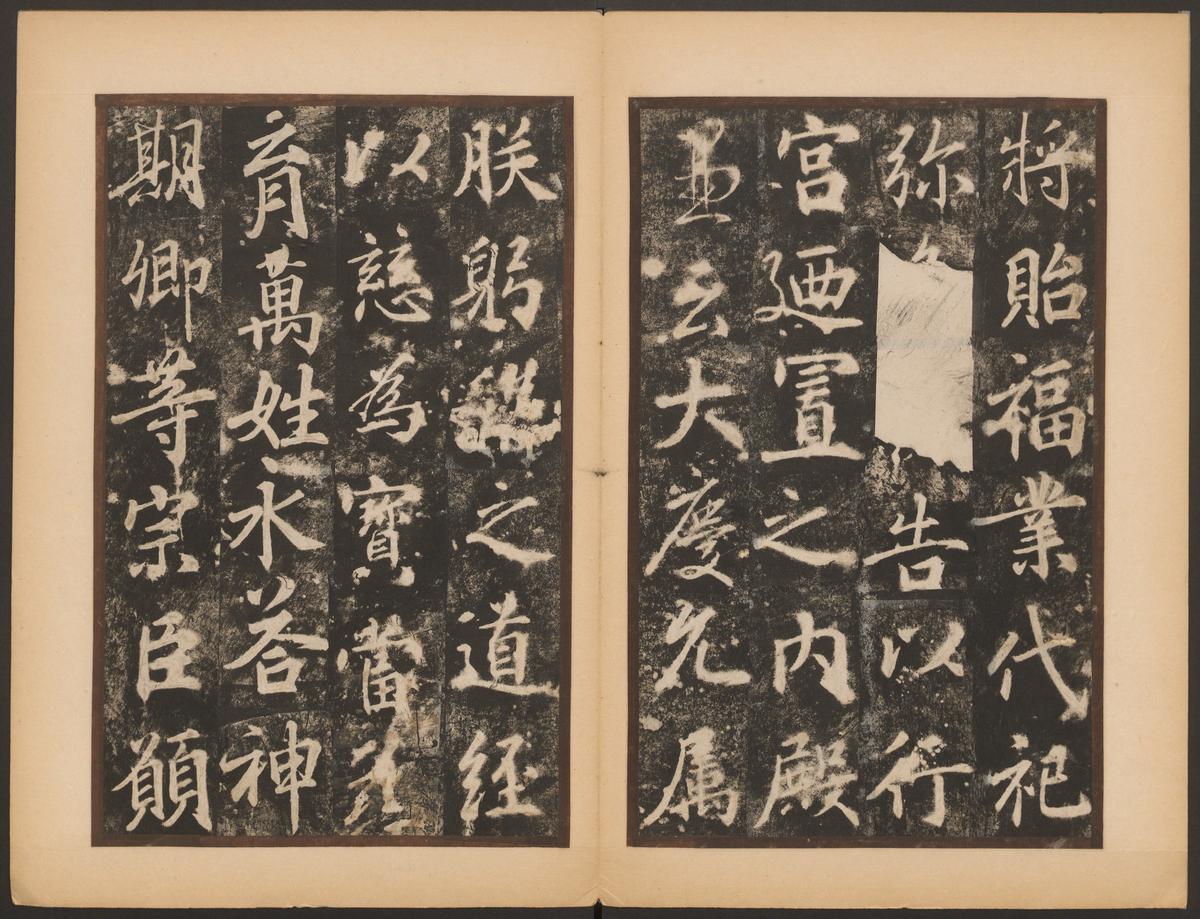 將貽福業代祀
弥告以行
宮迺置之內殿
並云大慶允属
朕躬之道経
以慈為寶當
育萬姓永荅神
期卿等宗臣願